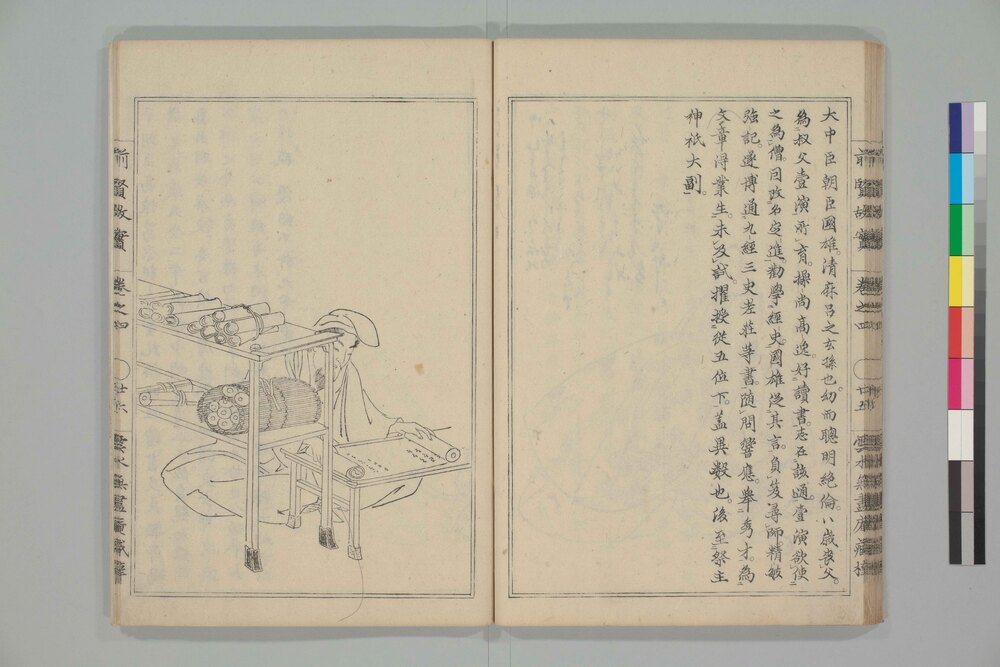 大中臣朝臣國雄。清麻呂之玄孫也。幼而聰明絶倫。八歳喪父。
為叔父壹演所育。操尚高逸。好讀書。志在該通。壹演欲使
之為僧。因改名定進。勸學經史。國雄從其言。負笈尋師。精敏
強記。遂博通九經三史老莊等書。隨問響應。擧秀才。為
文章得業生。未及試。擢授從五位下。蓋異數也。後至祭主
神祇大副。
前賢故實
卷之四
廿五
前賢故實
卷之四
廿六